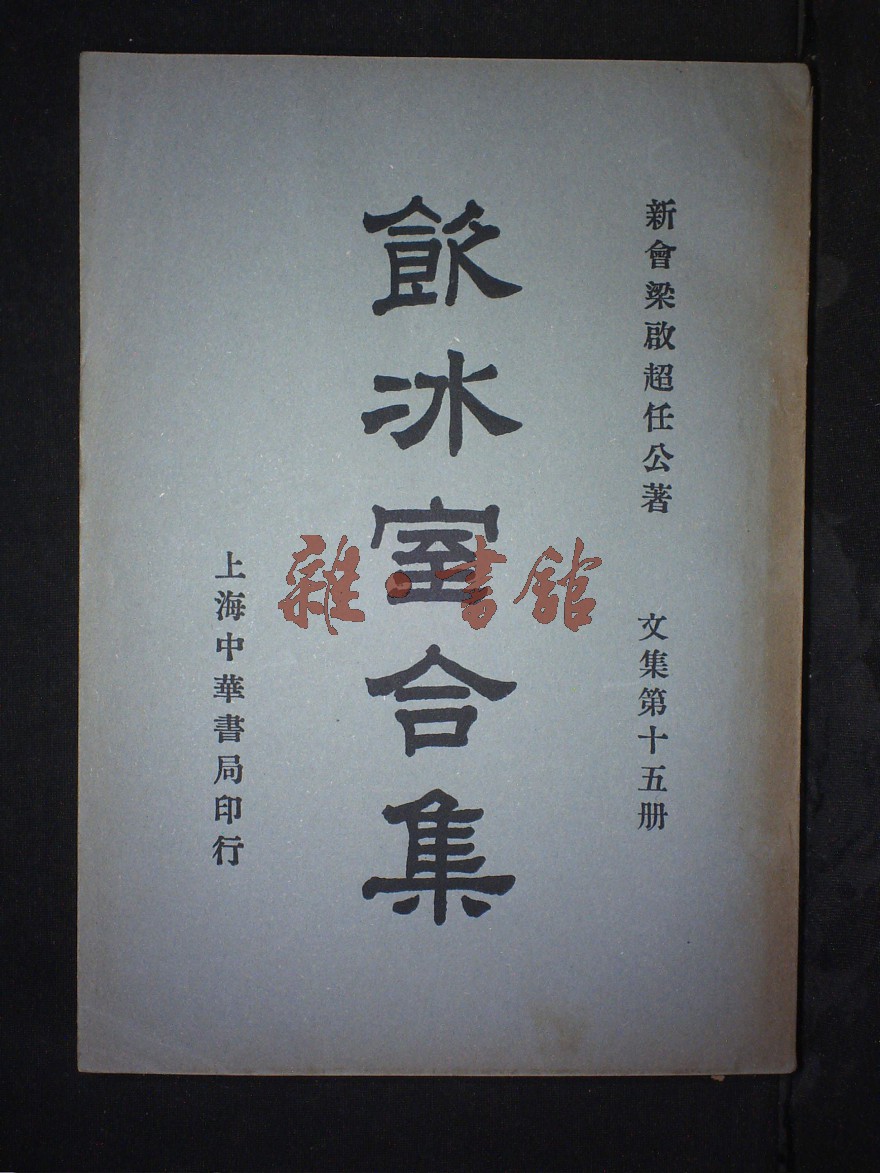 新會梁啟超任公著
文集第十五册
飲冰室合集
上海中華書局印行
雜·書館